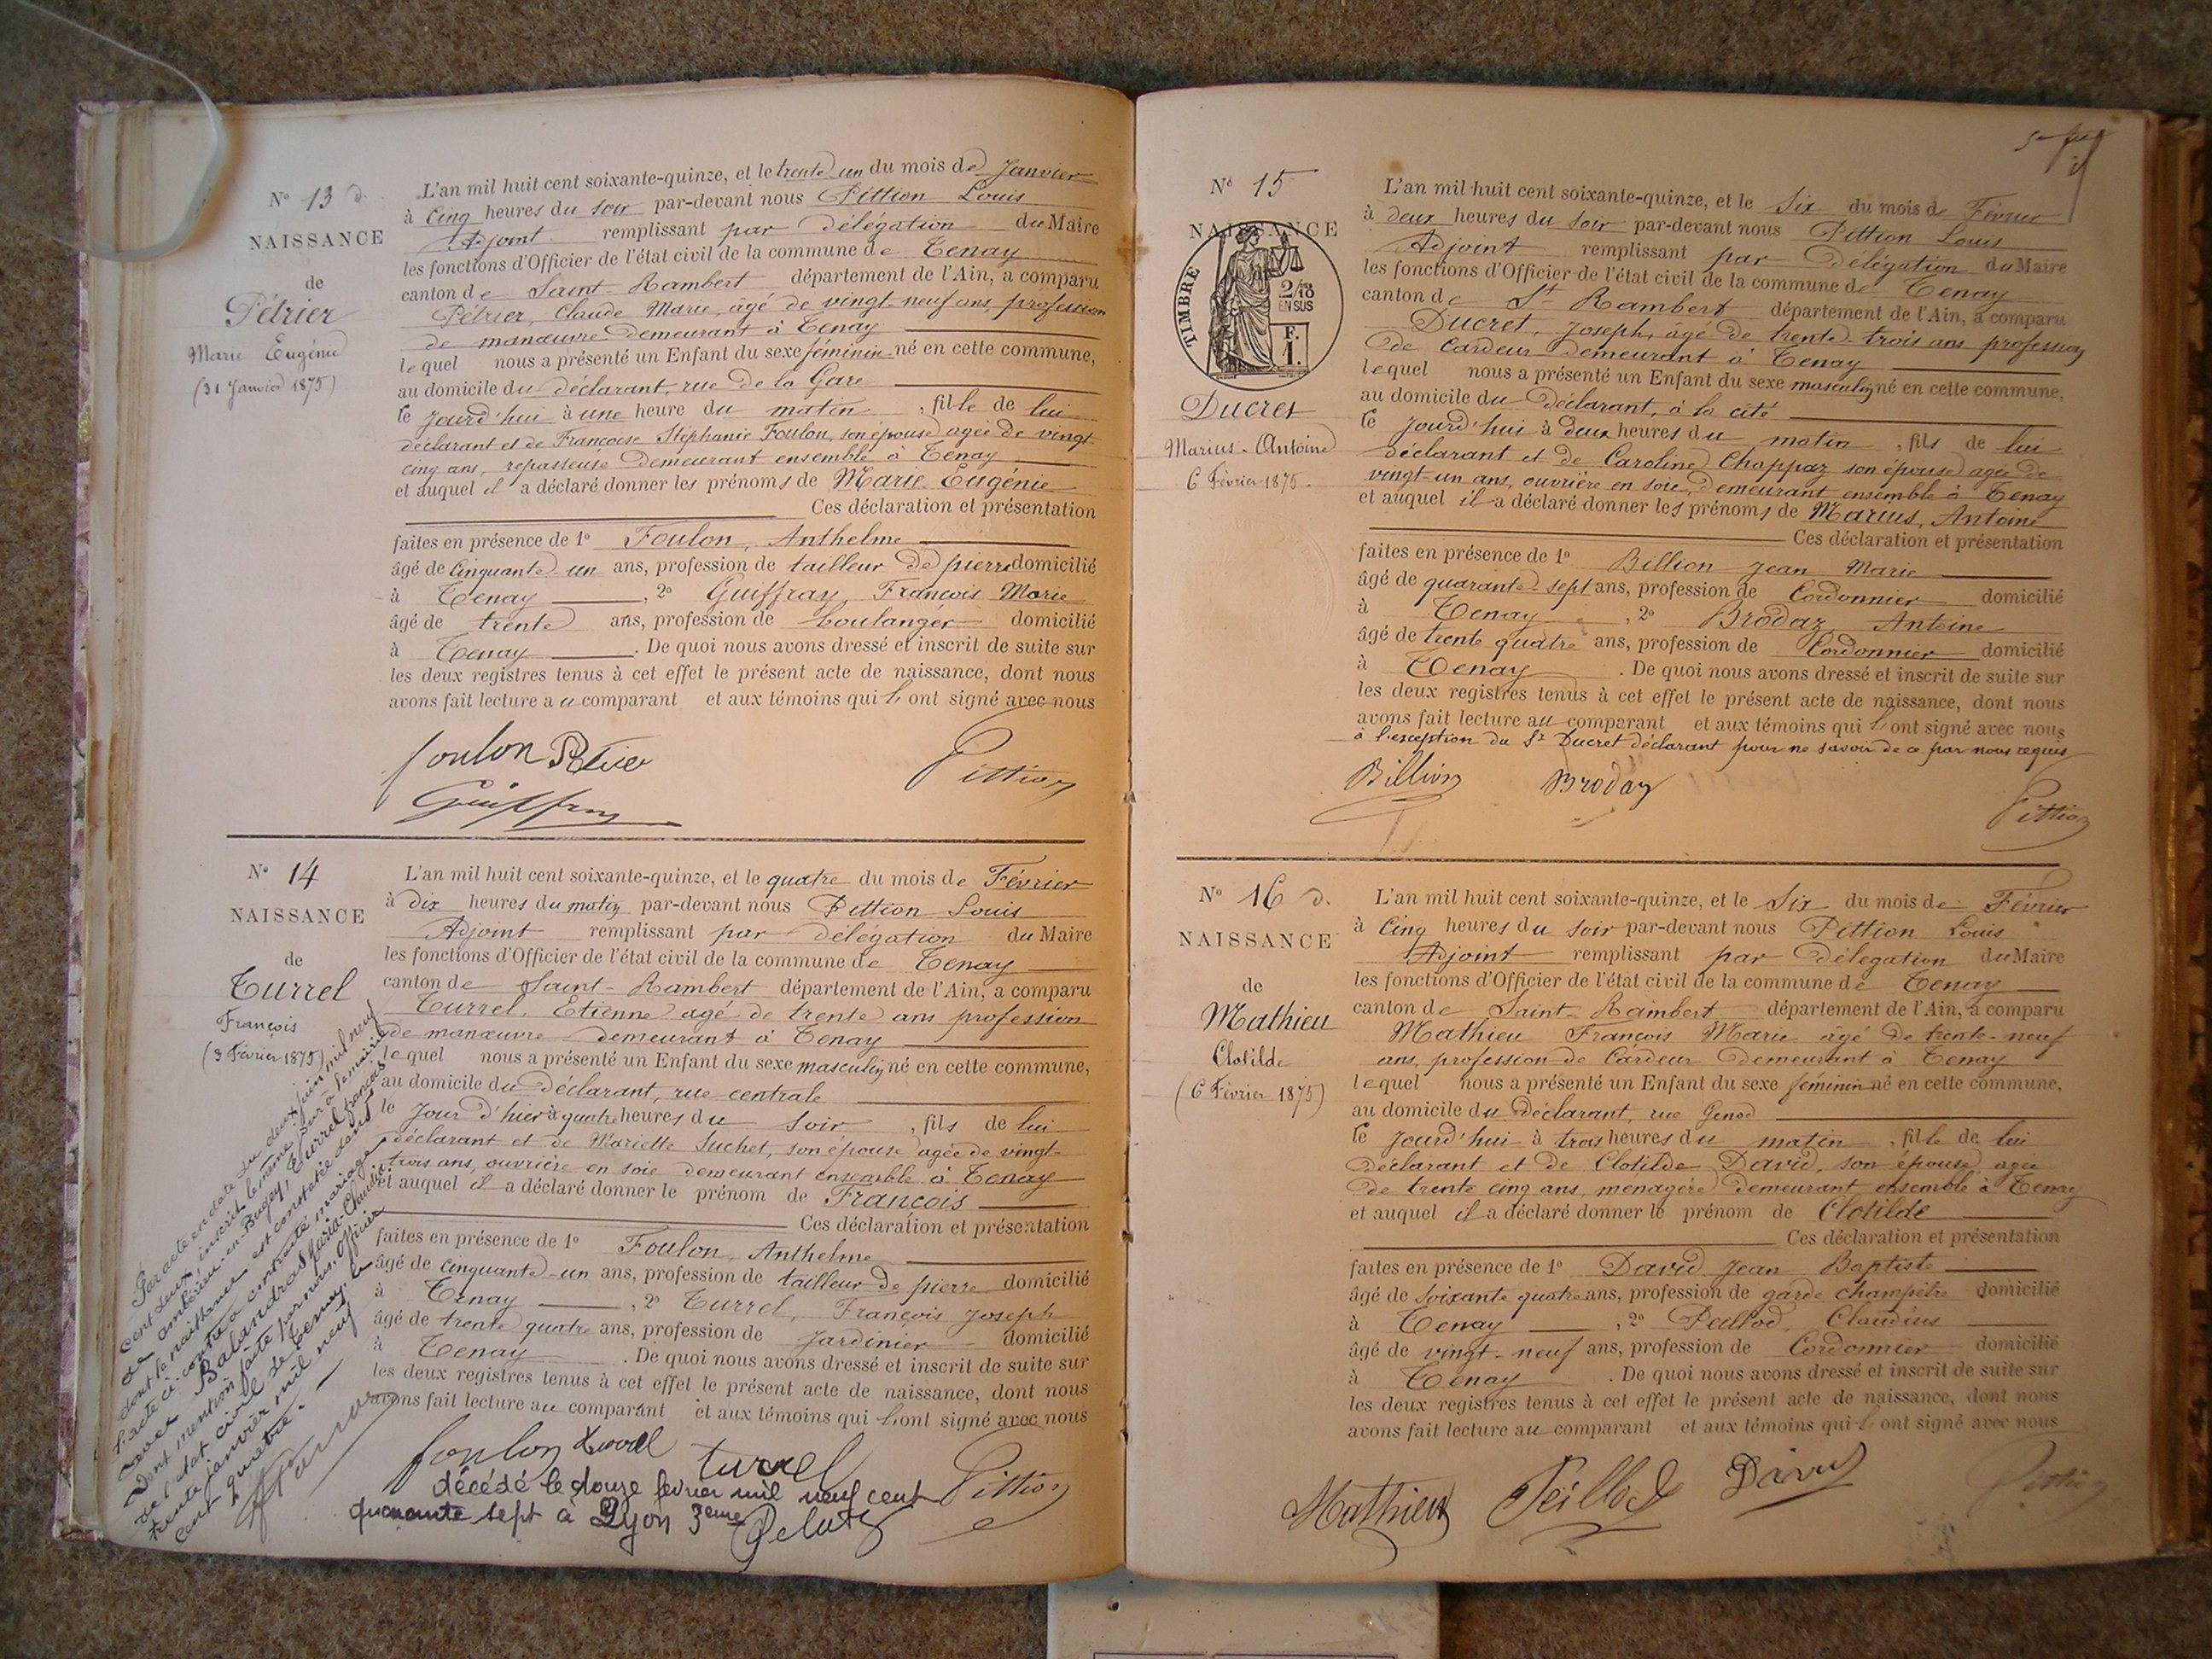 N° 13 d.
NAISSANCE
de
Pétrier
Marie Eugénie
(31 Janvier 1875)
L'an mil huit cent soixante-quinze, et le trente un du mois de Janvier
à Cinq heures du soir par-devant nous Pittion Louis
Adjoint remplissant par délégation du Maire
les fonctions d'Officier de l'état civil de la commune de Tenay
canton de Saint-Rambert département de l'Ain, a comparu
Pétrier, Claude Marie, âgé de vingt-neuf ans, profession
de manœuvre demeurant à Tenay
lequel nous a présenté un Enfant du sexe féminin né en cette commune,
au domicile du déclarant, rue de la Gare
le jourd'hui à une heure du matin, fille de lui
déclarant et de Françoise Stéphanie Foulon, son épouse agée de vingt
cinq ans, repasseuse demeurant ensemble à Tenay
et auquel il a déclaré donner les prénoms de Marie Eugénie
Ces déclaration et présentation
faites en présence de 1° Foulon, Anthelme
âgé de Cinquante-un ans, profession de tailleur de pierre domicilié
à Tenay, 2° Guiffray, François Marie
âgé de trente ans, profession de boulanger domicilié
à Tenay. De quoi nous avons dressé et inscrit de suite sur
les deux registres tenus à cet effet le présent acte de naissance, dont nous
avons fait lecture au comparant et aux témoins qui l'ont signé avec nous
foulon Pétrier Pittion
Guiffray
N° 14
NAISSANCE
de
Turrel
François
(3 Février 1875)
L'an mil huit cent soixante-quinze, et le quatre du mois de Février
à dix heures du matin par-devant nous Pittion Louis
Adjoint remplissant par délégation du Maire
les fonctions d'Officier de l'état civil de la commune de Tenay
canton de Saint-Rambert département de l'Ain, a comparu
Turrel, Etienne agé de trente ans profession
de manœuvre demeurant à Tenay
lequel nous a présenté un Enfant du sexe masculin né en cette commune,
au domicile du Déclarant, rue centrale
le jour d'hier à quatre heures du soir, fils de lui
déclarant et de Mariette Suchet, son épouse agée de vingt-
trois ans, ouvrière en soie demeurant ensemble à Tenay
et auquel il a déclaré donner le prénom de François
Ces déclaration et présentation
faites en présence de 1° Foulon, Anthelme
âgé de cinquante-un ans, profession de tailleur de pierre domicilié
à Tenay, 2° Turrel, François Joseph
âgé de trente quatre ans, profession de jardinier domicilié
à Tenay. De quoi nous avons dressé et inscrit de suite sur
les deux registres tenus à cet effet le présent acte de naissance, dont nous
avons fait lecture au comparant et aux témoins qui l'ont signé avec nous
foulon turrel turrel Pittion
décédé le douze fevrier mil neuf cent
quarante sept à Lyon 3eme
Par acte en date du deux juin mil neuf
cent deux, inscrit le même jour à la mairie
de Ambérieu-en-Bugey, Turrel françois
dont la naissance est constatée dans
l'acte ci-contre a contracté mariage
avec Balandras Maria-Claudia
Dont mention faite par nous, officier
de l'état civil de Tenay, le
trente janvier mil neuf
cent quatre.
N° 15
NAISSANCE
TIMBRE
2/10
EN SUS
F.
1.
Ducret
Marius-Antoine
6 Février 1875.
L'an mil huit cent soixante-quinze, et le Six du mois de Février
à deux heures du soir par-devant nous Pittion Louis
Adjoint remplissant par Délégation du Maire
les fonctions d'Officier de l'état civil de la commune de Tenay
canton de St Rambert département de l'Ain, a comparu
Ducret, Joseph, âgé de trente-trois ans profession
de Cardeur demeurant à Tenay
lequel nous a présenté un Enfant du sexe masculin né en cette commune,
au domicile du Déclarant, à la cité
le jourd'hui à deux heures du matin, fils de lui
déclarant et de Caroline Chappaz son épouse agée de
vingt-un ans, ouvrière en soie, demeurant ensemble à Tenay
et auquel il a déclaré donner les prénoms de Marius, Antoine
Ces déclaration et présentation
faites en présence de 1° Billion Jean Marie
âgé de quarante-sept ans, profession de Cordonnier domicilié
à Tenay, 2° Brodaz Antoine
âgé de trente quatre ans, profession de Cordonnier domicilié
à Tenay. De quoi nous avons dressé et inscrit de suite sur
les deux registres tenus à cet effet le présent acte de naissance, dont nous
avons fait lecture au comparant et aux témoins qui l'ont signé avec nous
à l'exception du Sr Ducret déclarant pour ne savoir de ce par nous requis
Billion Brodaz Pittion
N° 16 d.
NAISSANCE
de
Mathieu
Clotilde
(6 Février 1875)
L'an mil huit cent soixante-quinze, et le Six du mois de Février
à Cinq heures du soir par-devant nous Pittion Louis
Adjoint remplissant par Délégation du Maire
les fonctions d'Officier de l'état civil de la commune de Tenay
canton de Saint-Rambert département de l'Ain, a comparu
Mathieu François Marie âgé de trente-neuf
ans, profession de Cardeur demeurant à Tenay
lequel nous a présenté un Enfant du sexe féminin né en cette commune,
au domicile du Déclarant, rue Genod
le jourd'hui à trois heures du matin, fille de lui
Déclarant et de Clotilde David, son épouse, agée
de trente cinq ans, menagère demeurant ensemble à Tenay
et auquel il a déclaré donner le prénom de Clotilde
Ces déclaration et présentation
faites en présence de 1° David Jean Baptiste
âgé de soixante quatre ans, profession de garde champêtre domicilié
à Tenay, 2° Peillod, Claudius
âgé de vingt-neuf ans, profession de Cordonnier domicilié
à Tenay. De quoi nous avons dressé et inscrit de suite sur
les deux registres tenus à cet effet le présent acte de naissance, dont nous
avons fait lecture au comparant et aux témoins qui l'ont signé avec nous
Mathieu Peillod David Pittion